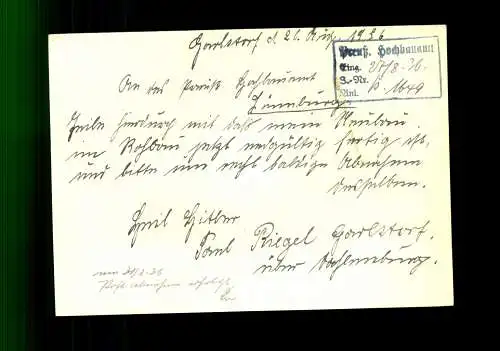 Garlstorf d. 26. Aug. 1936
Preuß. Hochbauamt
Eing. 27/8.36.
J.-Nr. P. 1649
Anl.
An das Preuß. Hochbauamt
Lüneburg.
Teile hierdurch mit daß mein Neubau
im Rohbau jetzt endgültig fertig ist,
und bitte um recht baldige Abnahme
desselben.
Heil Hitler
Paul Riegel Garlstorf.
über Dahlenburg.